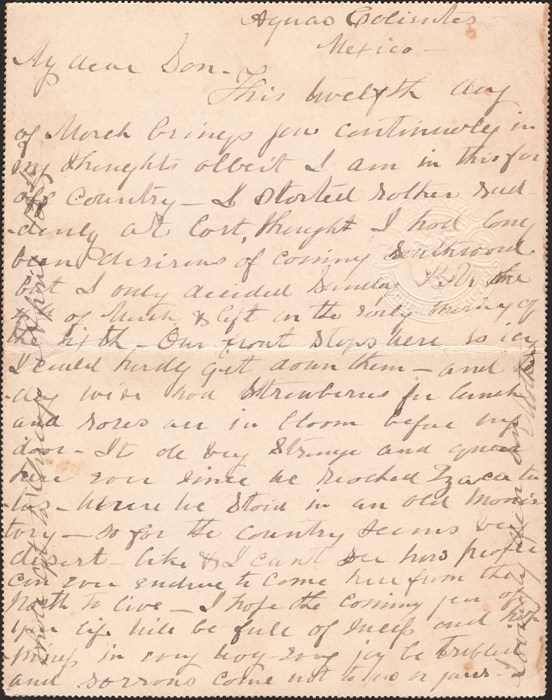 Aguas Calientes
Mexico -
My dear Don -
This twelfth day
of March brings you continually in
my thoughts albeit I am in this far
off country - I started rather sud-
denly at last, thought I had long
been desirous of coming southward
but I only decided Sunday the
of March & left on the early morning of
the sixth - Our front steps here so icy
I could hardly get down them - and to
day we've had strawberries for lunch
and roses are in bloom before my
door - It all very strange and queer
here ever since we reached Zacate
cas - where we stood in an old monas
tery - so far the country seems very
desert - like & I can't see how people
can ever endure to come here from the
North to live - I hope the coming year of
your life will be full of and hap-
piness in every way - every joy be trebled
and sorrows come not to you or yours -
Loving